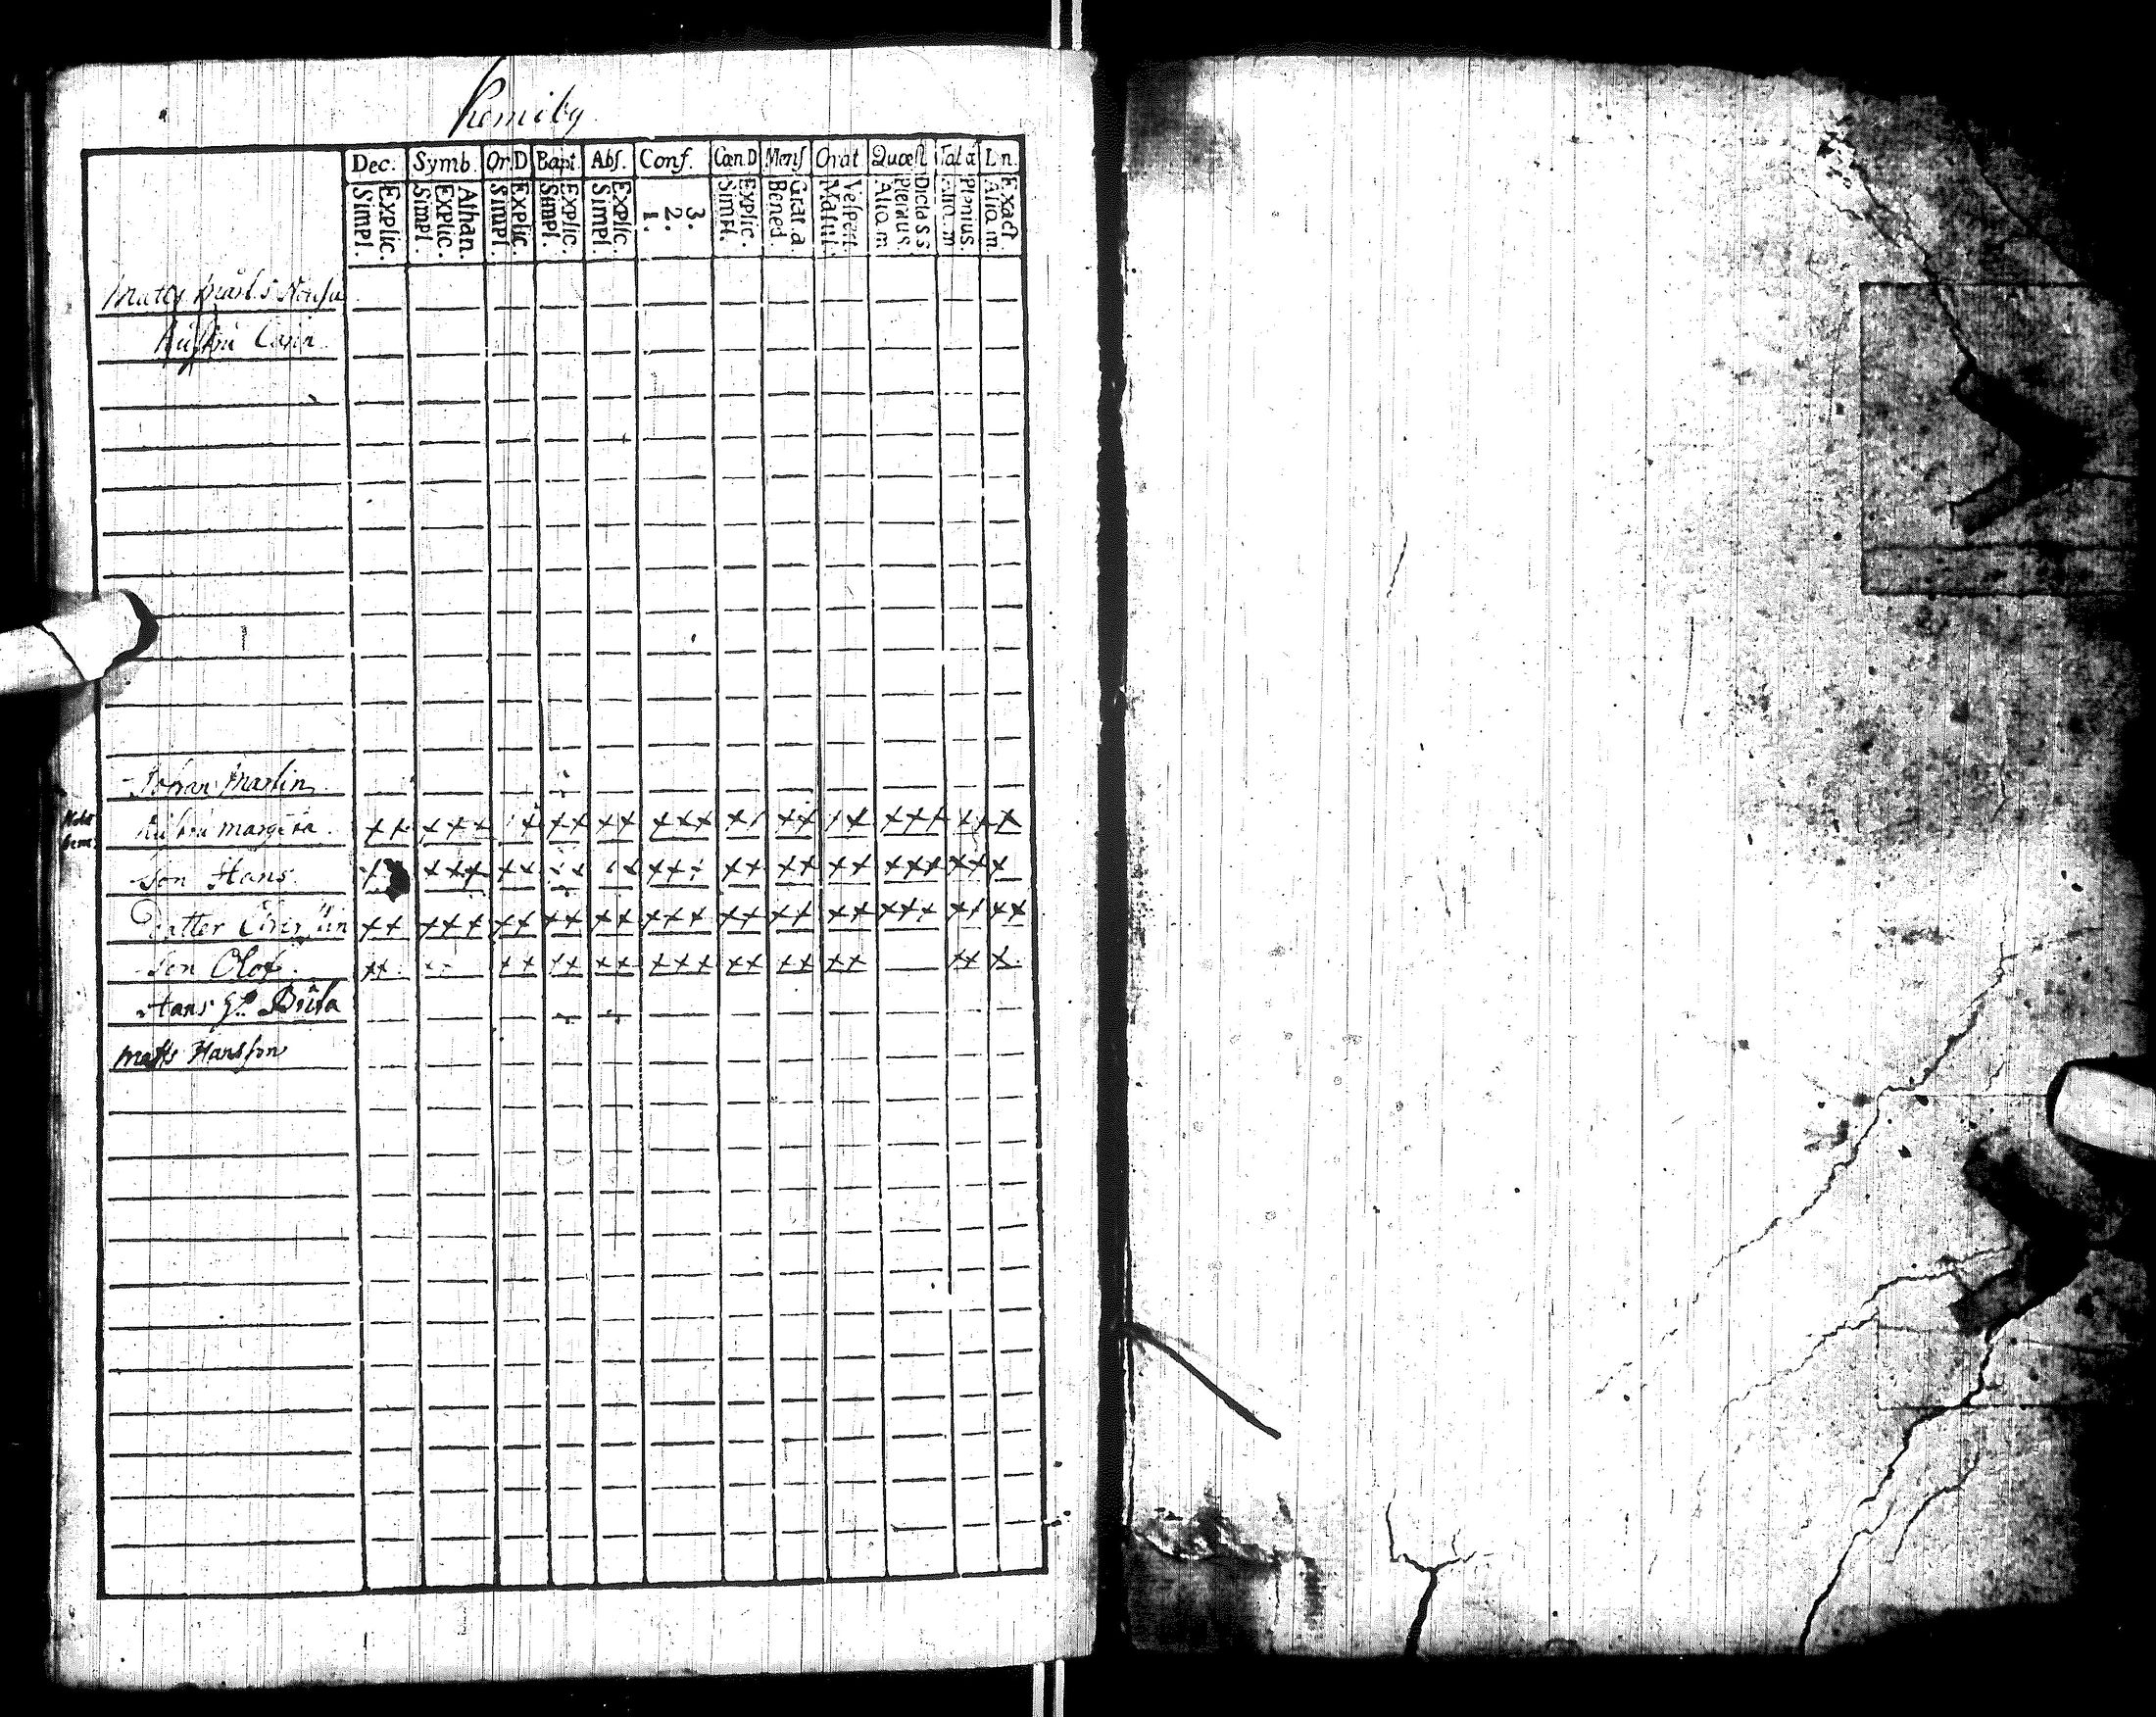 Kemiby
Dec. Symb. Or.D Bapt. Abſ. Conf. Cœn.D Menſ Orat Quæſt Tal æ L n.
Explic. Simpl. Athan. Explic. Simpl. Explic. Simpl. Explic. Simpl. Explic. Simpl. 3. 2. 1. Explic. Simpl. Grat.a Bened. Veſpert. Matut. Dicta s s. Plenius. Alio.m Plenius. Alio.m Exact. Alio.m.
Matts
Hustru Carin
Johan Martin
Hustru margeta.
Son Hans.
Datter Christin
Son Olof.
Hans
Matts Hansson